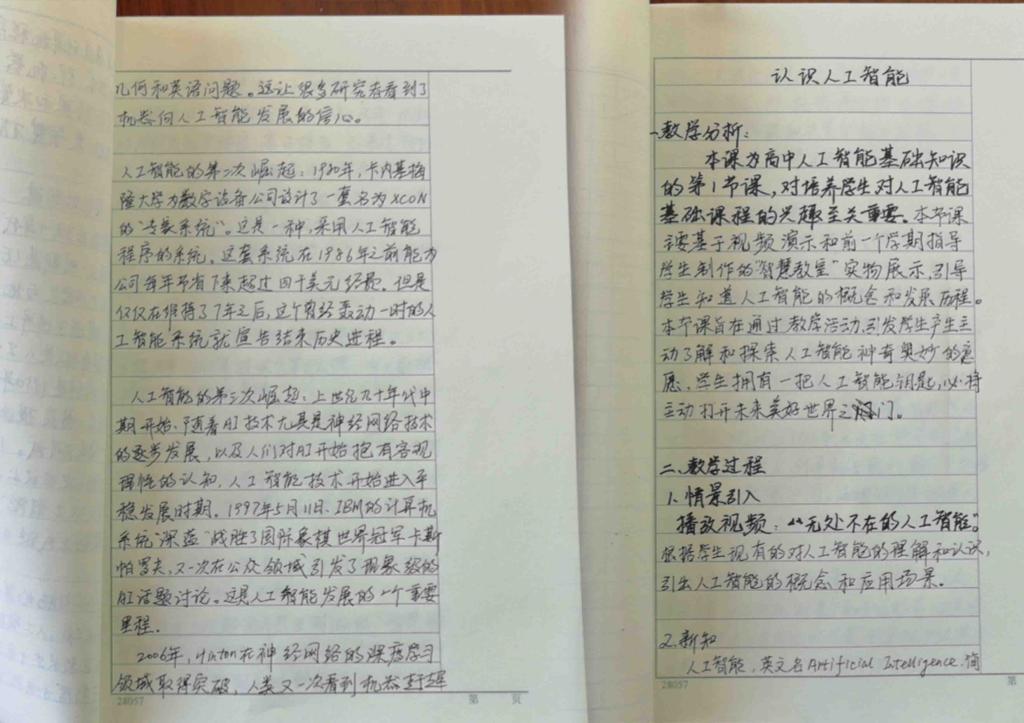 几何和英语问题。这让很多研究者看到了
机器向人工智能发展的信心。
人工智能的第二次崛起：1980年，卡内基梅
隆大学为数字设备公司设计了一套名为XCON
的“专家系统”。这是一种，采用人工智能
程序的系统。这套系统在1986年之前能为
公司每年节省下来超过四千美元经费。但是
仅仅在维持了7年之后，这个曾经轰动一时的人
工智能系统就宣告结束历史进程。
人工智能的第三次崛起：上世纪九十年代中
期开始，随着AI技术尤其是神经网络技术
的逐步发展，以及人们对AI开始抱有客观
理性的认知，人工智能技术开始进入平
稳发展时期。1997年5月11日，IBM的计算机
系统“深蓝”战胜了国际象棋世界冠军卡斯
帕罗夫，又一次在公众领域引发了现象级的
AI话题讨论。这是人工智能发展的一个重要
里程。
2006年，Hinton在神经网络的深度学习
领域取得突破，人类又一次看到机器赶超
28057
第 页
认识人工智能
一、教学分析：
本课为高中人工智能基础知识
的第1节课，对培养学生对人工智能
基础课程的兴趣至关重要。本节课
主要基于视频演示和前一个学期指导
学生制作的“智慧教室”实物展示，引导
学生知道人工智能的概念和发展历程。
本节课旨在通过教学活动，引发学生产生主
动了解和探索人工智能神奇奥妙的意
愿，学生拥有一把人工智能钥匙，必将
主动打开未来美好世界之门。
二、教学过程
1、情景引入
播放视频：“无处不在的人工智能”
依据学生现有的对人工智能的理解和认识，
引出人工智能的概念和应用场景。
2、新知
人工智能，英文名Artificial Intelligence，简
28057
第